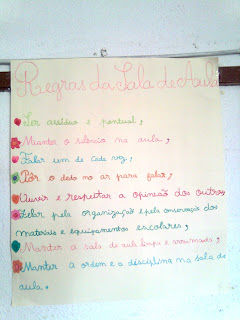 Regras da Sala de Aula
Ser assíduo e pontual;
Manter o silêncio na aula;
Falar um de cada vez;
Pôr o dedo no ar para falar;
Ouvir e respeitar a opinião dos outros;
Zelar pela organização e pela conservação dos
materiais e equipamentos escolares;
Manter a sala de aula limpa e arrumada;
Manter a ordem e a disciplina na sala de
aula.